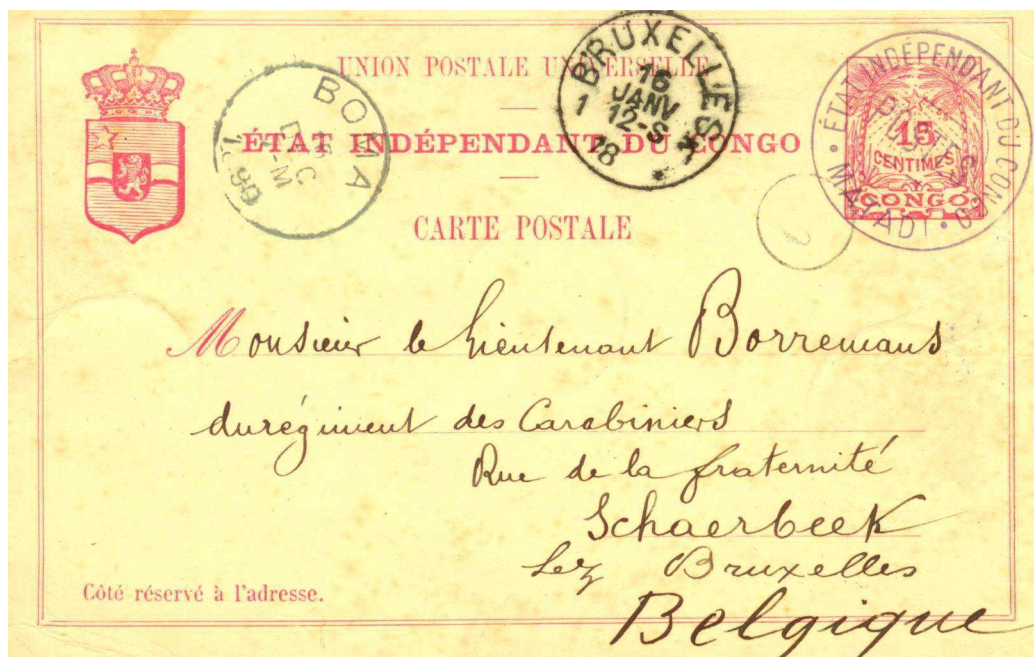 UNION POSTALE UNIVERSELLE
ÉTAT INDÉPENDANT DU CONGO
CARTE POSTALE
BOMA
BRUXELLES
1
16
JANV
12-S
18
ÉTAT INDÉPENDANT DU CONGO
POSTES
MATADI
15
CENTIMES
CONGO
Monsieur le Lieutenant Borremans
du régiment des Carabiniers
Rue de la fraternité
Schaerbeek
Lez Bruxelles
Belgique
Côté réservé à l'adresse.